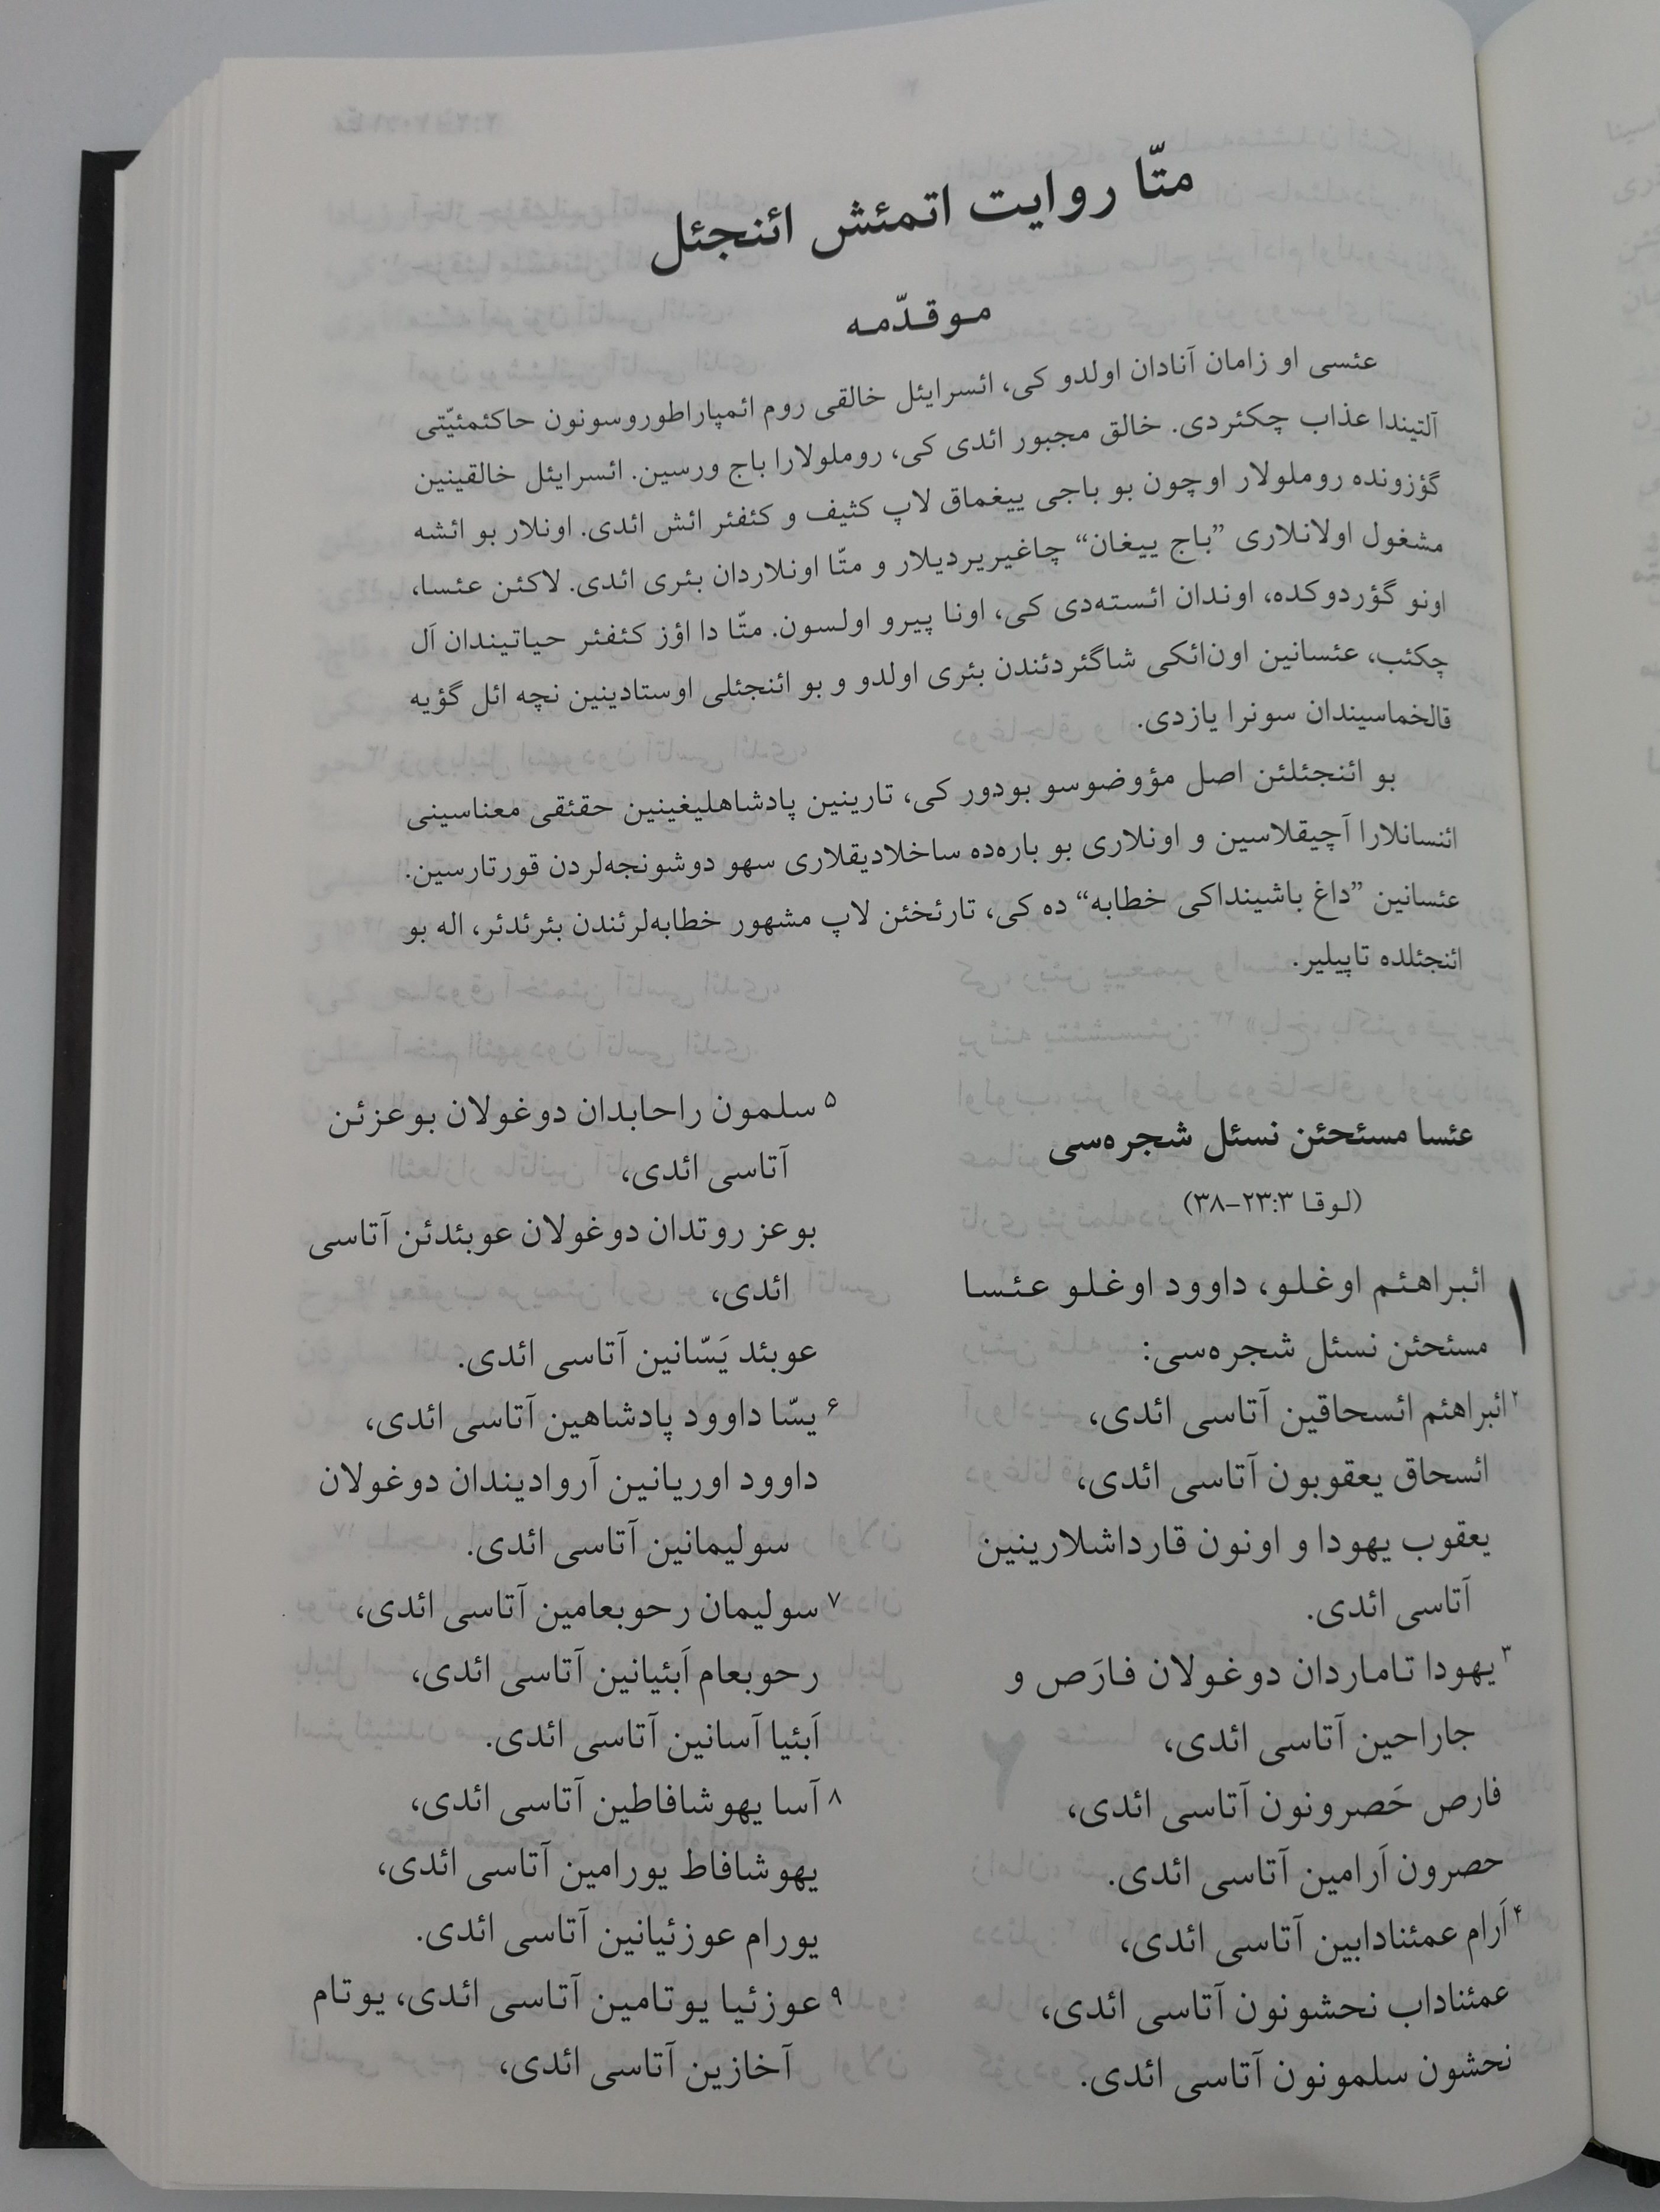 متّا روایت اتمئش ائنجئل
موقدّمه
عئسی او زامان آنادان اولدو کی، ائسرایئل خالقی روم ائمپاراطوروسونون حاکئمئیّتی
آلتیندا عذاب چکئردی. خالق مجبور ائدی کی، روملولارا باج ورسین. ائسرایئل خالقینین
گؤزونده روملولار اوچون بو باجی ییغماق لاپ کثیف و کئفئر ائش ائدی. اونلار بو ائشه
مشغول اولانلاری ”باج ییغان“ چاغیریردیلار و متّا اونلاردان بئری ائدی. لاکئن عئسا،
اونو گؤردوکده، اوندان ائسته‌دی کی، اونا پیرو اولسون. متّا دا اؤز کئفئر حیاتیندان اَل
چکئب، عئسانین اون‌ائکی شاگئردئندن بئری اولدو و بو ائنجئلی اوستادینین نچه ائل گؤیه
قالخماسیندان سونرا یازدی.
بو ائنجئلئن اصل مؤوضوسو بودور کی، تارینین پادشاهلیغینین حقئقی معناسینی
ائنسانلارا آچیقلاسین و اونلاری بو باره‌ده ساخلادیقلاری سهو دوشونجه‌لردن قورتارسین.
عئسانین ”داغ باشینداکی خطابه“ ده کی، تارئخئن لاپ مشهور خطابه‌لرئندن بئرئدئر، اله بو
ائنجئلده تاپیلیر.
عئسا مسئحئن نسئل شجره‌سی
(لوقا ۲۳:۳–۳۸)
۱ ائبراهئم اوغلو، داوود اوغلو عئسا
مسئحئن نسئل شجره‌سی:
۲ ائبراهئم ائسحاقین آتاسی ائدی،
ائسحاق یعقوبون آتاسی ائدی،
یعقوب یهودا و اونون قارداشلارینین
آتاسی ائدی.
۳ یهودا تاماردان دوغولان فارَص و
جاراحین آتاسی ائدی،
فارص حَصرونون آتاسی ائدی،
حصرون اَرامین آتاسی ائدی.
۴ اَرام عمئنادابین آتاسی ائدی،
عمئناداب نحشونون آتاسی ائدی،
نحشون سلمونون آتاسی ائدی.
۵ سلمون راحابدان دوغولان بوعزئن
آتاسی ائدی،
بوعز روتدان دوغولان عوبئدئن آتاسی
ائدی،
عوبئد یَسّانین آتاسی ائدی.
۶ یسّا داوود پادشاهین آتاسی ائدی،
داوود اوریانین آروادیندان دوغولان
سولیمانین آتاسی ائدی.
۷ سولیمان رحوبعامین آتاسی ائدی،
رحوبعام اَبئیانین آتاسی ائدی،
اَبئیا آسانین آتاسی ائدی.
۸ آسا یهوشافاطین آتاسی ائدی،
یهوشافاط یورامین آتاسی ائدی،
یورام عوزئیانین آتاسی ائدی.
۹ عوزئیا یوتامین آتاسی ائدی، یوتام
آخازین آتاسی ائدی،